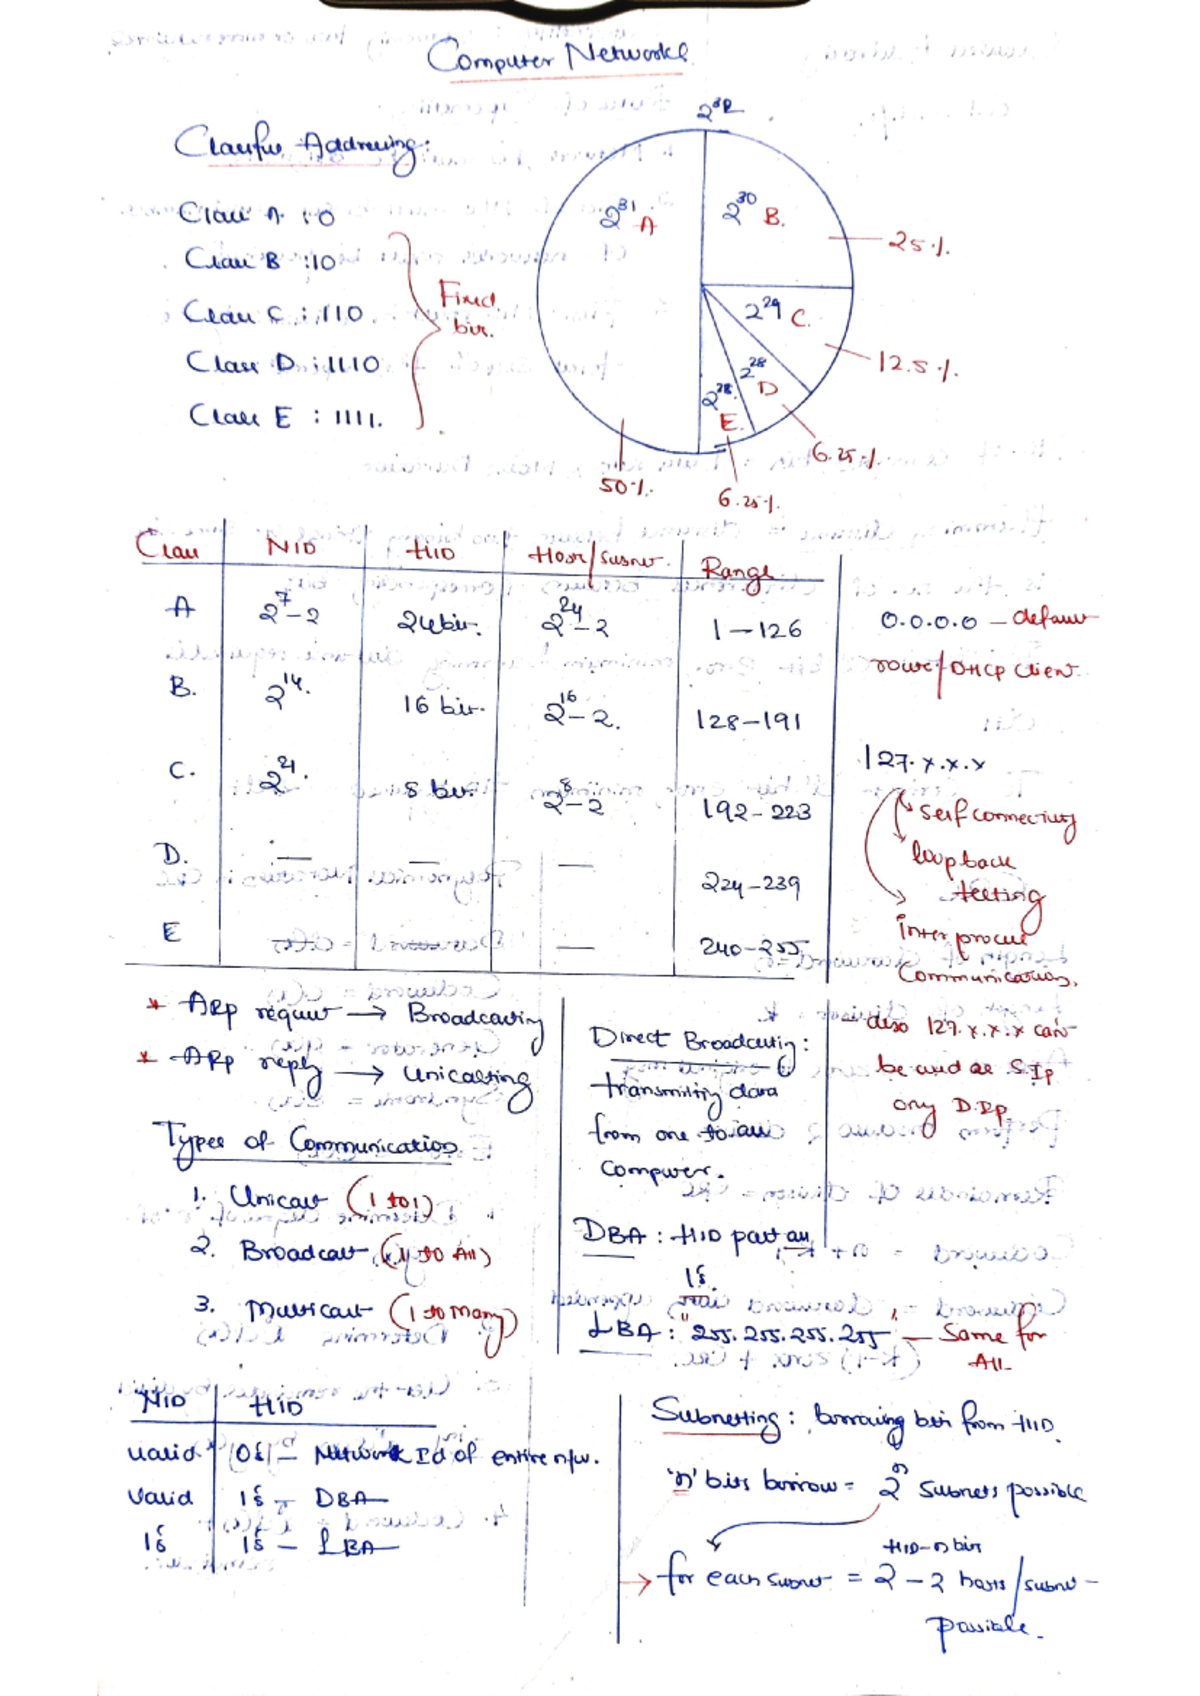 Computer Networks
Classful Addressing:
Class A : 0
Class B : 10
Class C : 110
Class D : 1110
Class E : 1111.
Fixed
bits.
2^32
2^31 A
2^30 B.
2^29 C.
2^28 D
2^28. E.
25%.
12.5%.
6.25%.
6.25%.
50%.
Class | NID | HID | Host/Subnet. | Range
A | 2^7-2 | 24 bits. | 2^24-2 | 1-126
B. | 2^14. | 16 bits. | 2^16-2. | 128-191
C. | 2^21. | 8 bits. | 2^8-2 | 192-223
D. | — | — | — | 224-239
E | — | — | — | 240-255
0.0.0.0 - default
route/DHCP Client.
127.x.x.x
Self connectivity
loopback
testing
Inter process
Communication.
- also 127.x.x.x can
be used as S.Ip
only D.Ip
* ARP request → Broadcasting
* ARP reply → Unicasting
Types of Communication
1. Unicast (1 to 1)
2. Broadcast (1 to All)
3. Multicast (1 to Many)
Direct Broadcasting:
transmiting data
from one to all
computer.
DBA : HID part all
1s.
LBA : "255.255.255.255" - Same for
All
NID | HID
Valid | 0s - Network Id of entire n/w.
Valid | 1s - DBA
1s | 1s - LBA
Subnetting: borrowing bits from HID.
'n' bits borrow = 2^n Subnets possible
→ for each subnet = 2^(HID-n bits) - 2 hosts/subnet-
Possible.